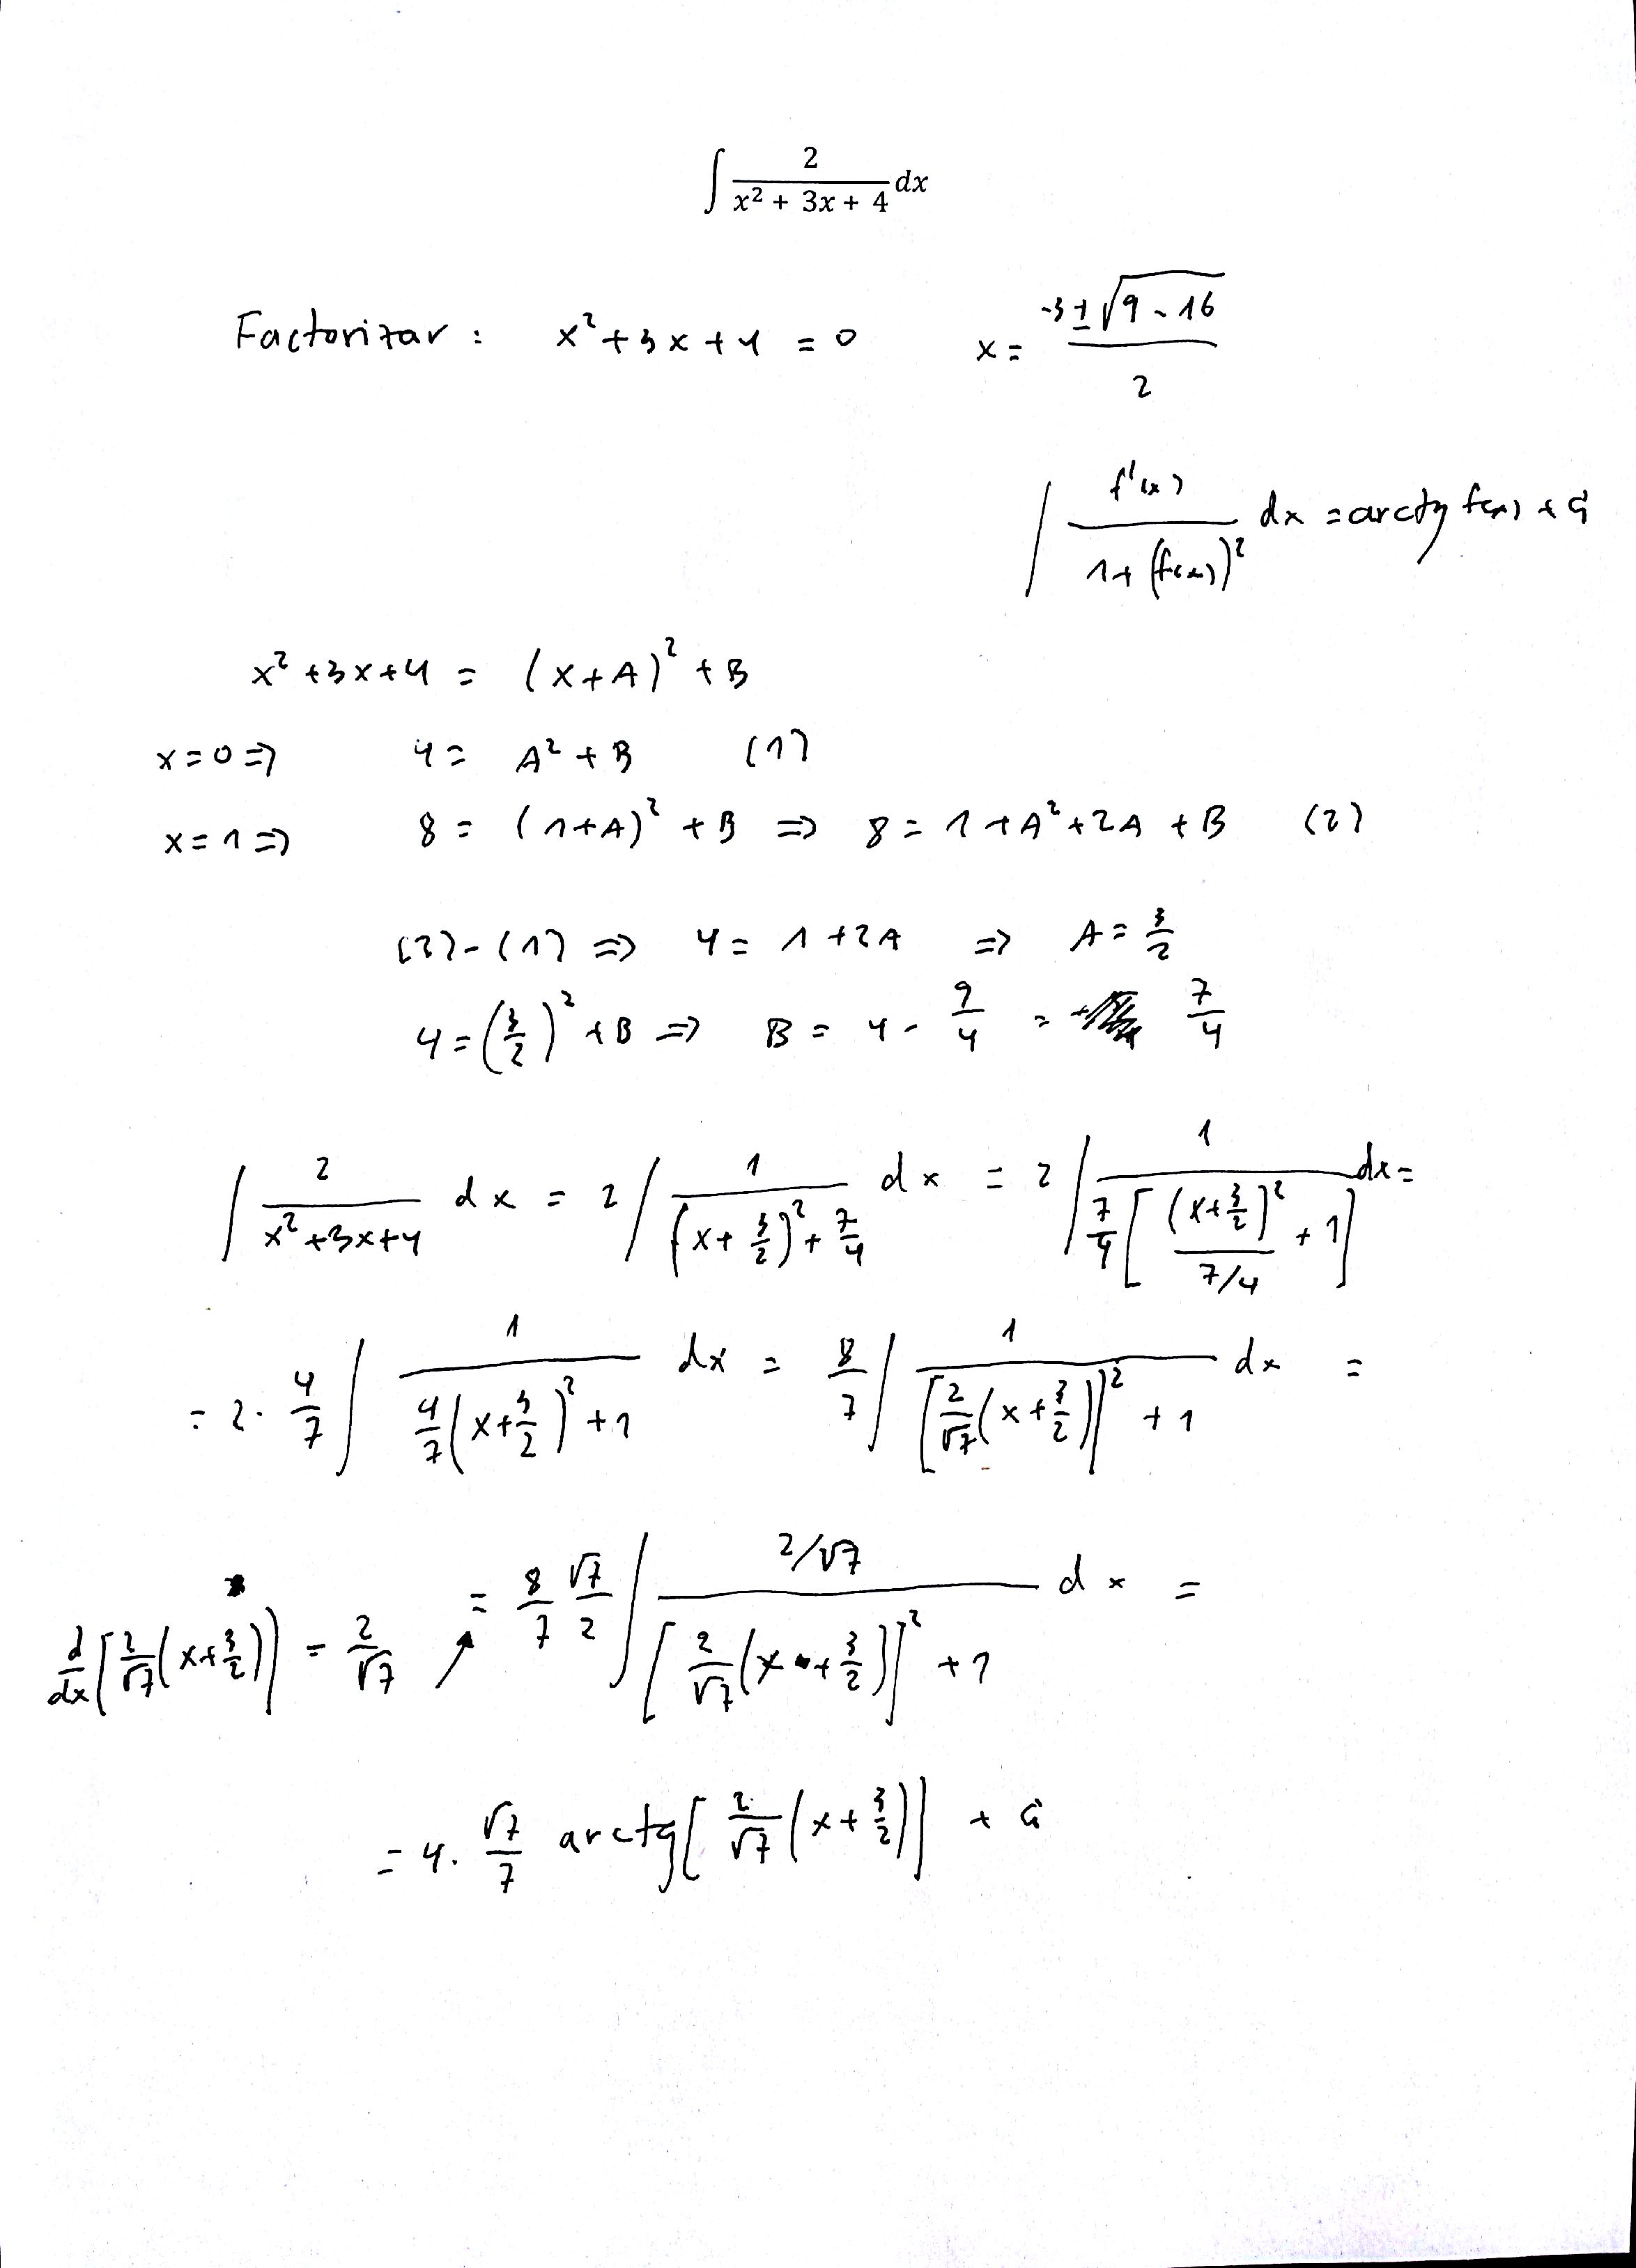 ∫ 2/(x² + 3x + 4) dx
Factorizar : x²+3x+4 = 0 x = (-3±√(9-16))/2
∫ f'(x)/(1+(f(x))²) dx = arctg f(x) + G
x²+3x+4 = (x+A)²+B
x=0 ⇒ 4 = A²+B (1)
x=1 ⇒ 8 = (1+A)²+B ⇒ 8 = 1+A²+2A+B (2)
(2)-(1) ⇒ 4 = 1+2A ⇒ A = 3/2
4 = (3/2)²+B ⇒ B = 4 - 9/4 = 7/4
∫ 2/(x²+3x+4) dx = 2 ∫ 1/((x+3/2)²+7/4) dx = 2 ∫ 1/(7/4 [(x+3/2)²/(7/4) + 1]) dx =
= 2 · 4/7 ∫ 1/(4/7 (x+3/2)²+1) dx = 8/7 ∫ 1/([2/√7 (x+3/2)]²+1) dx =
d/dx [2/√7 (x+3/2)] = 2/√7 ↗ = 8/7 √7/2 ∫ (2/√7)/([2/√7 (x+3/2)]²+1) dx =
= 4 · √7/7 arctg [2/√7 (x+3/2)] + G